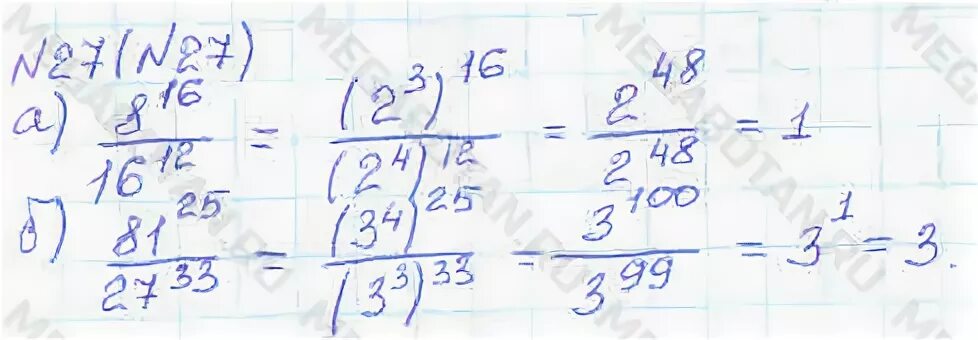 N27(N27)
а) 8^16 / 16^12 = (2^3)^16 / (2^4)^12 = 2^48 / 2^48 = 1
б) 81^25 / 27^33 = (3^4)^25 / (3^3)^33 = 3^100 / 3^99 = 3^1 = 3.
MEGABOTAN.RU